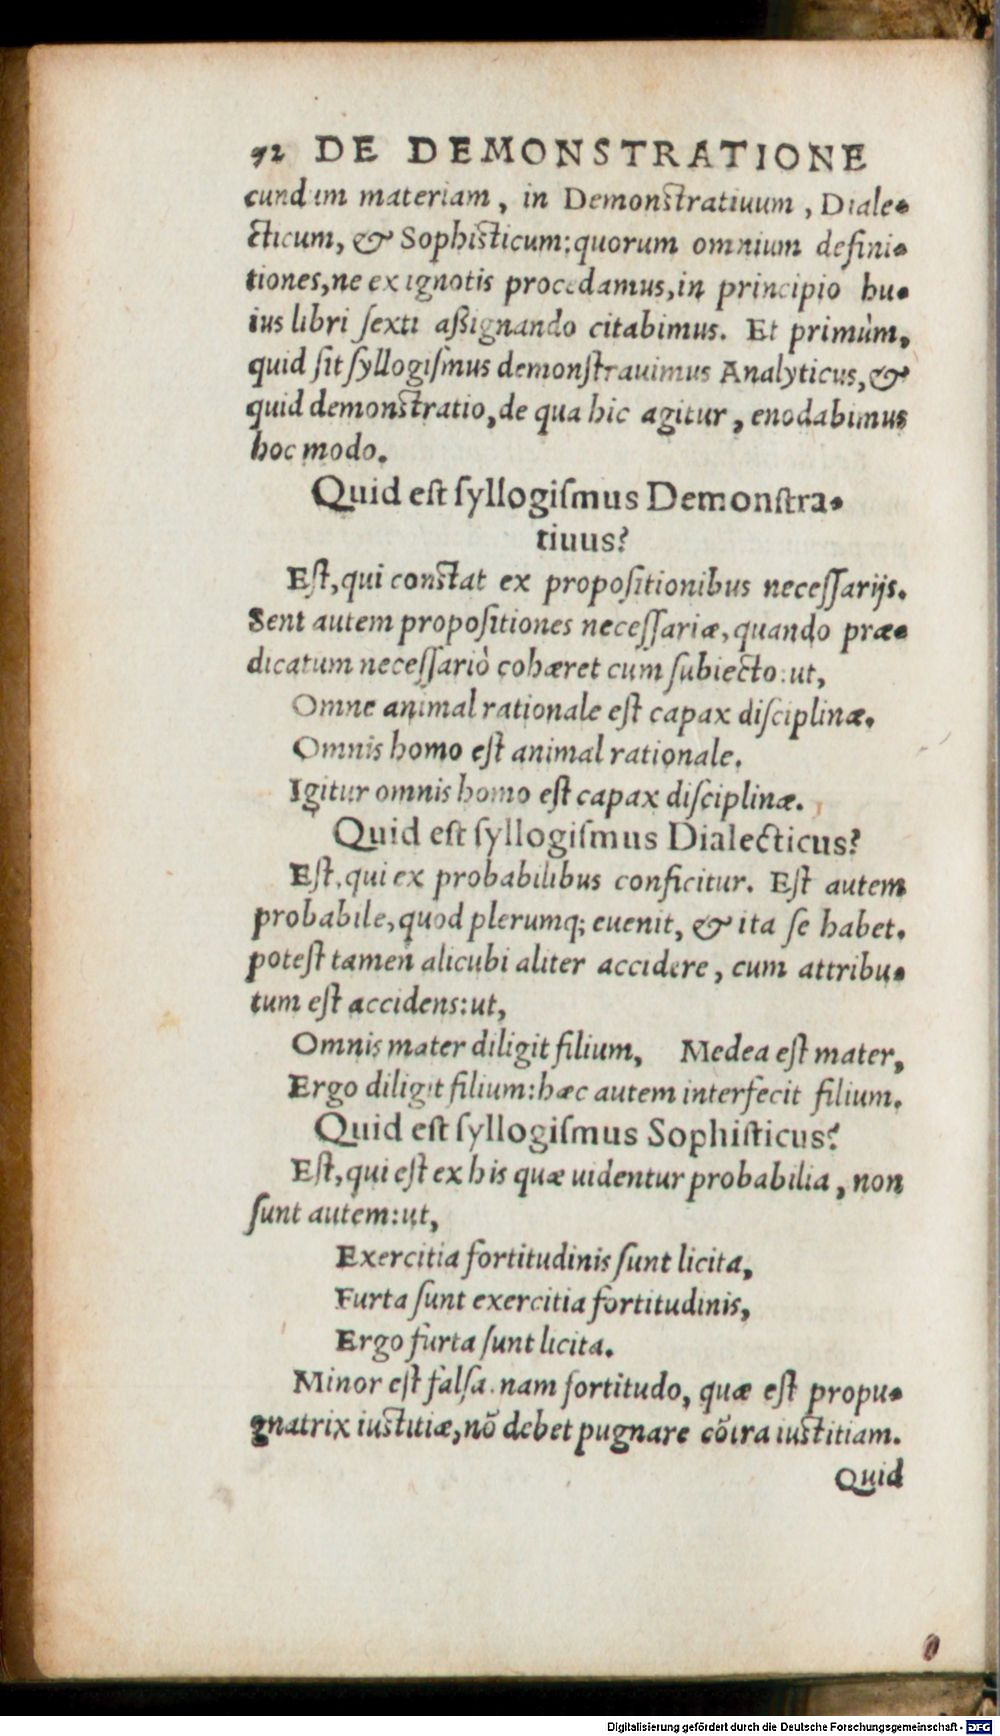 92 DE DEMONSTRATIONE
cundum materiam, in Demonstratiuum, Diale-
cticum, & Sophisticum: quorum omnium defini-
tiones, ne ex ignotis procedamus, in principio hu-
ius libri sexti aßignando citabimus. Et primùm,
quid sit syllogiſmus demonſtrauimus Analyticus, &
quid demonstratio, de qua hic agitur, enodabimus
hoc modo.
Quid eſt ſyllogiſmus Demonſtra-
tiuus?
Eſt, qui constat ex propoſitionibus neceſſarijs.
Sent autem propoſitiones neceſſariæ, quando præ-
dicatum neceſſariò cohæret cum ſubiecto: ut,
Omne animal rationale eſt capax diſciplinæ.
Omnis homo eſt animal rationale.
Igitur omnis homo eſt capax diſciplinæ.
Quid eſt ſyllogiſmus Dialecticus?
Eſt, qui ex probabilibus conficitur. Eſt autem
probabile, quod plerumq; euenit, & ita ſe habet.
poteſt tamen alicubi aliter accidere, cum attribu-
tum eſt accidens: ut,
Omnis mater diligit filium, Medea eſt mater,
Ergo diligit filium: hæc autem interfecit filium.
Quid eſt ſyllogiſmus Sophiſticus?
Eſt, qui eſt ex his quæ uidentur probabilia, non
ſunt autem: ut,
Exercitia fortitudinis ſunt licita,
Furta ſunt exercitia fortitudinis,
Ergo furta ſunt licita.
Minor eſt falſa. nam fortitudo, quæ eſt propu-
gnatrix iustitiæ, nõ debet pugnare cõtra iustitiam.
Quid
Digitalisierung gefördert durch die Deutsche Forschungsgemeinschaft - DFG